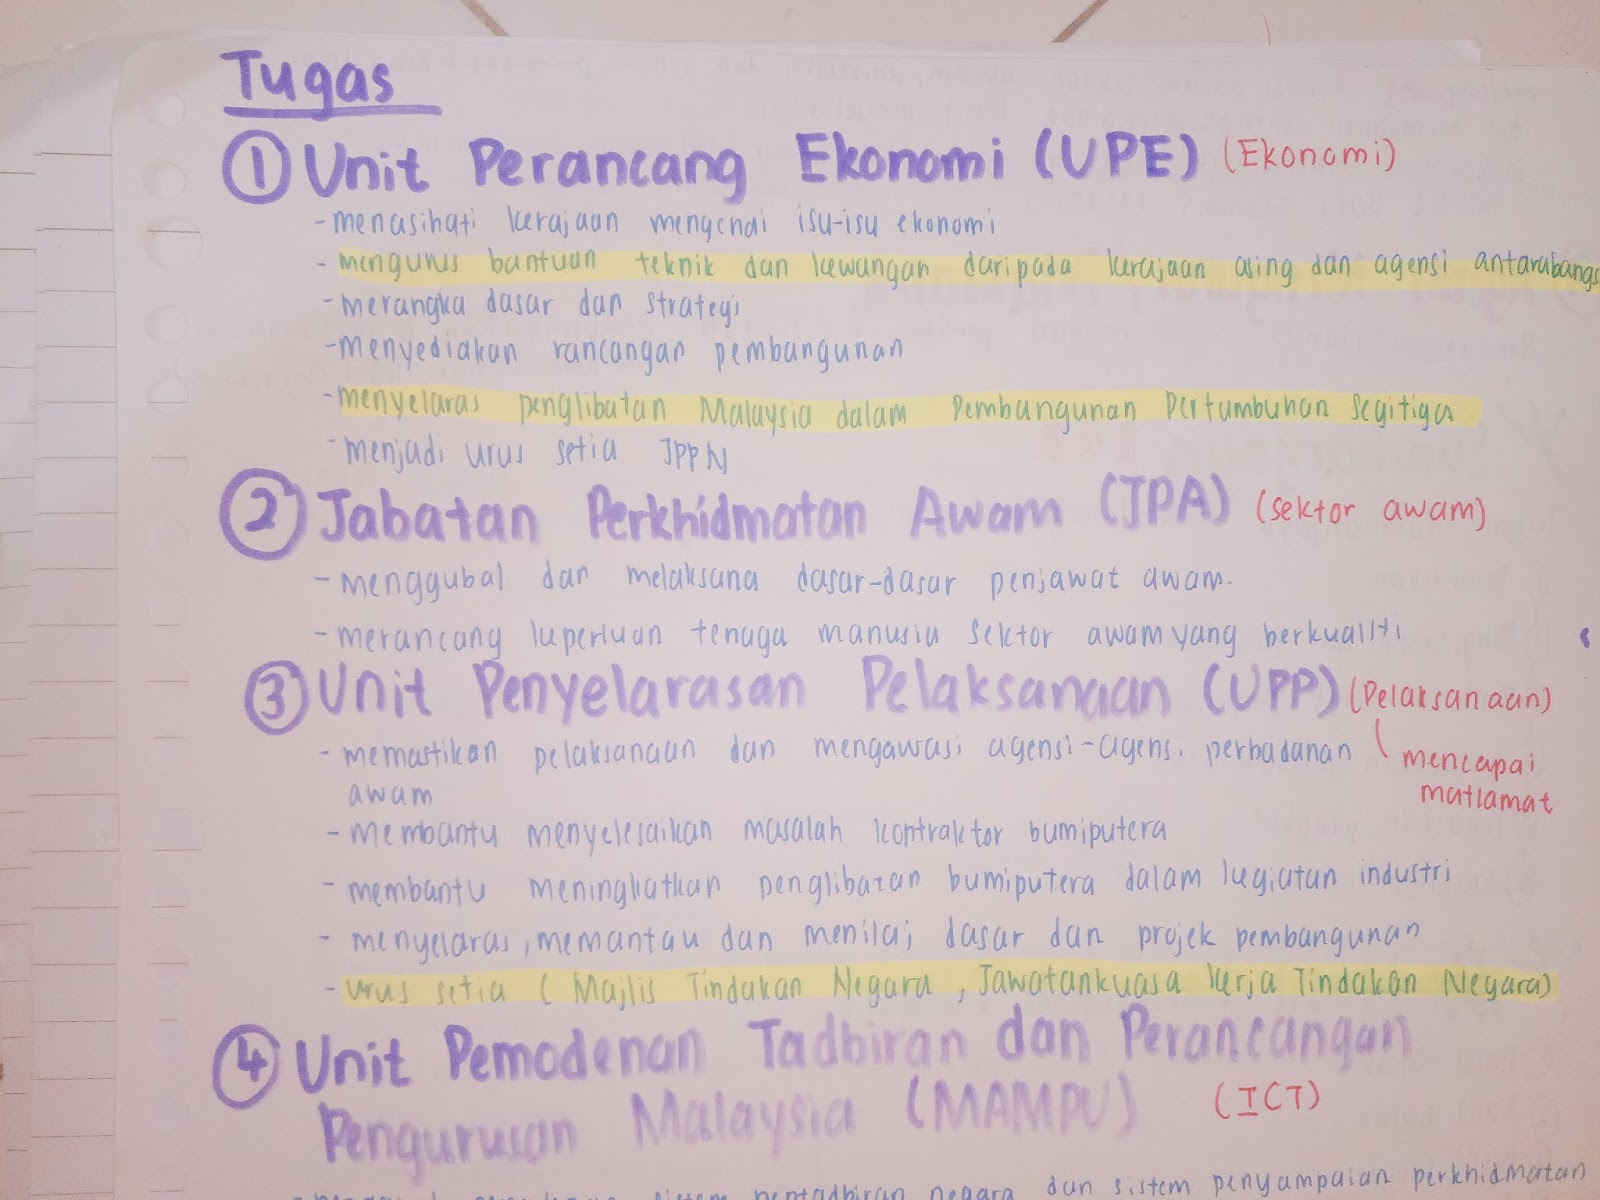 Tugas
① Unit Perancang Ekonomi (UPE) (Ekonomi)
- menasihati kerajaan mengenai isu-isu ekonomi
- mengurus bantuan teknik dan kewangan daripada kerajaan asing dan agensi antarabangs
- merangka dasar dan strategi
- menyediakan rancangan pembangunan
- menyelaras penglibatan Malaysia dalam Pembangunan Pertumbuhan Segitiga
- menjadi urus setia JPPN
② Jabatan Perkhidmatan Awam (JPA) (sektor awam)
- menggubal dan melaksana dasar-dasar penjawat awam.
- merancang keperluan tenaga manusia sektor awam yang berkualiti
③ Unit Penyelarasan Pelaksanaan (UPP) (Pelaksanaan)
- memastikan pelaksanaan dan mengawasi agensi-agensi perbadanan
awam
mencapai
matlamat
- membantu menyelesaikan masalah kontraktor bumiputera
- membantu meningkatkan penglibatan bumiputera dalam kegiatan industri
- menyelaras, memantau dan menilai dasar dan projek pembangunan
- urus setia (Majlis Tindakan Negara, Jawatankuasa Kerja Tindakan Negara)
④ Unit Pemodenan Tadbiran dan Perancangan
Pengurusan Malaysia (MAMPU) (ICT)
sistem pentadbiran negara dan sistem penyampaian perkhidmatan